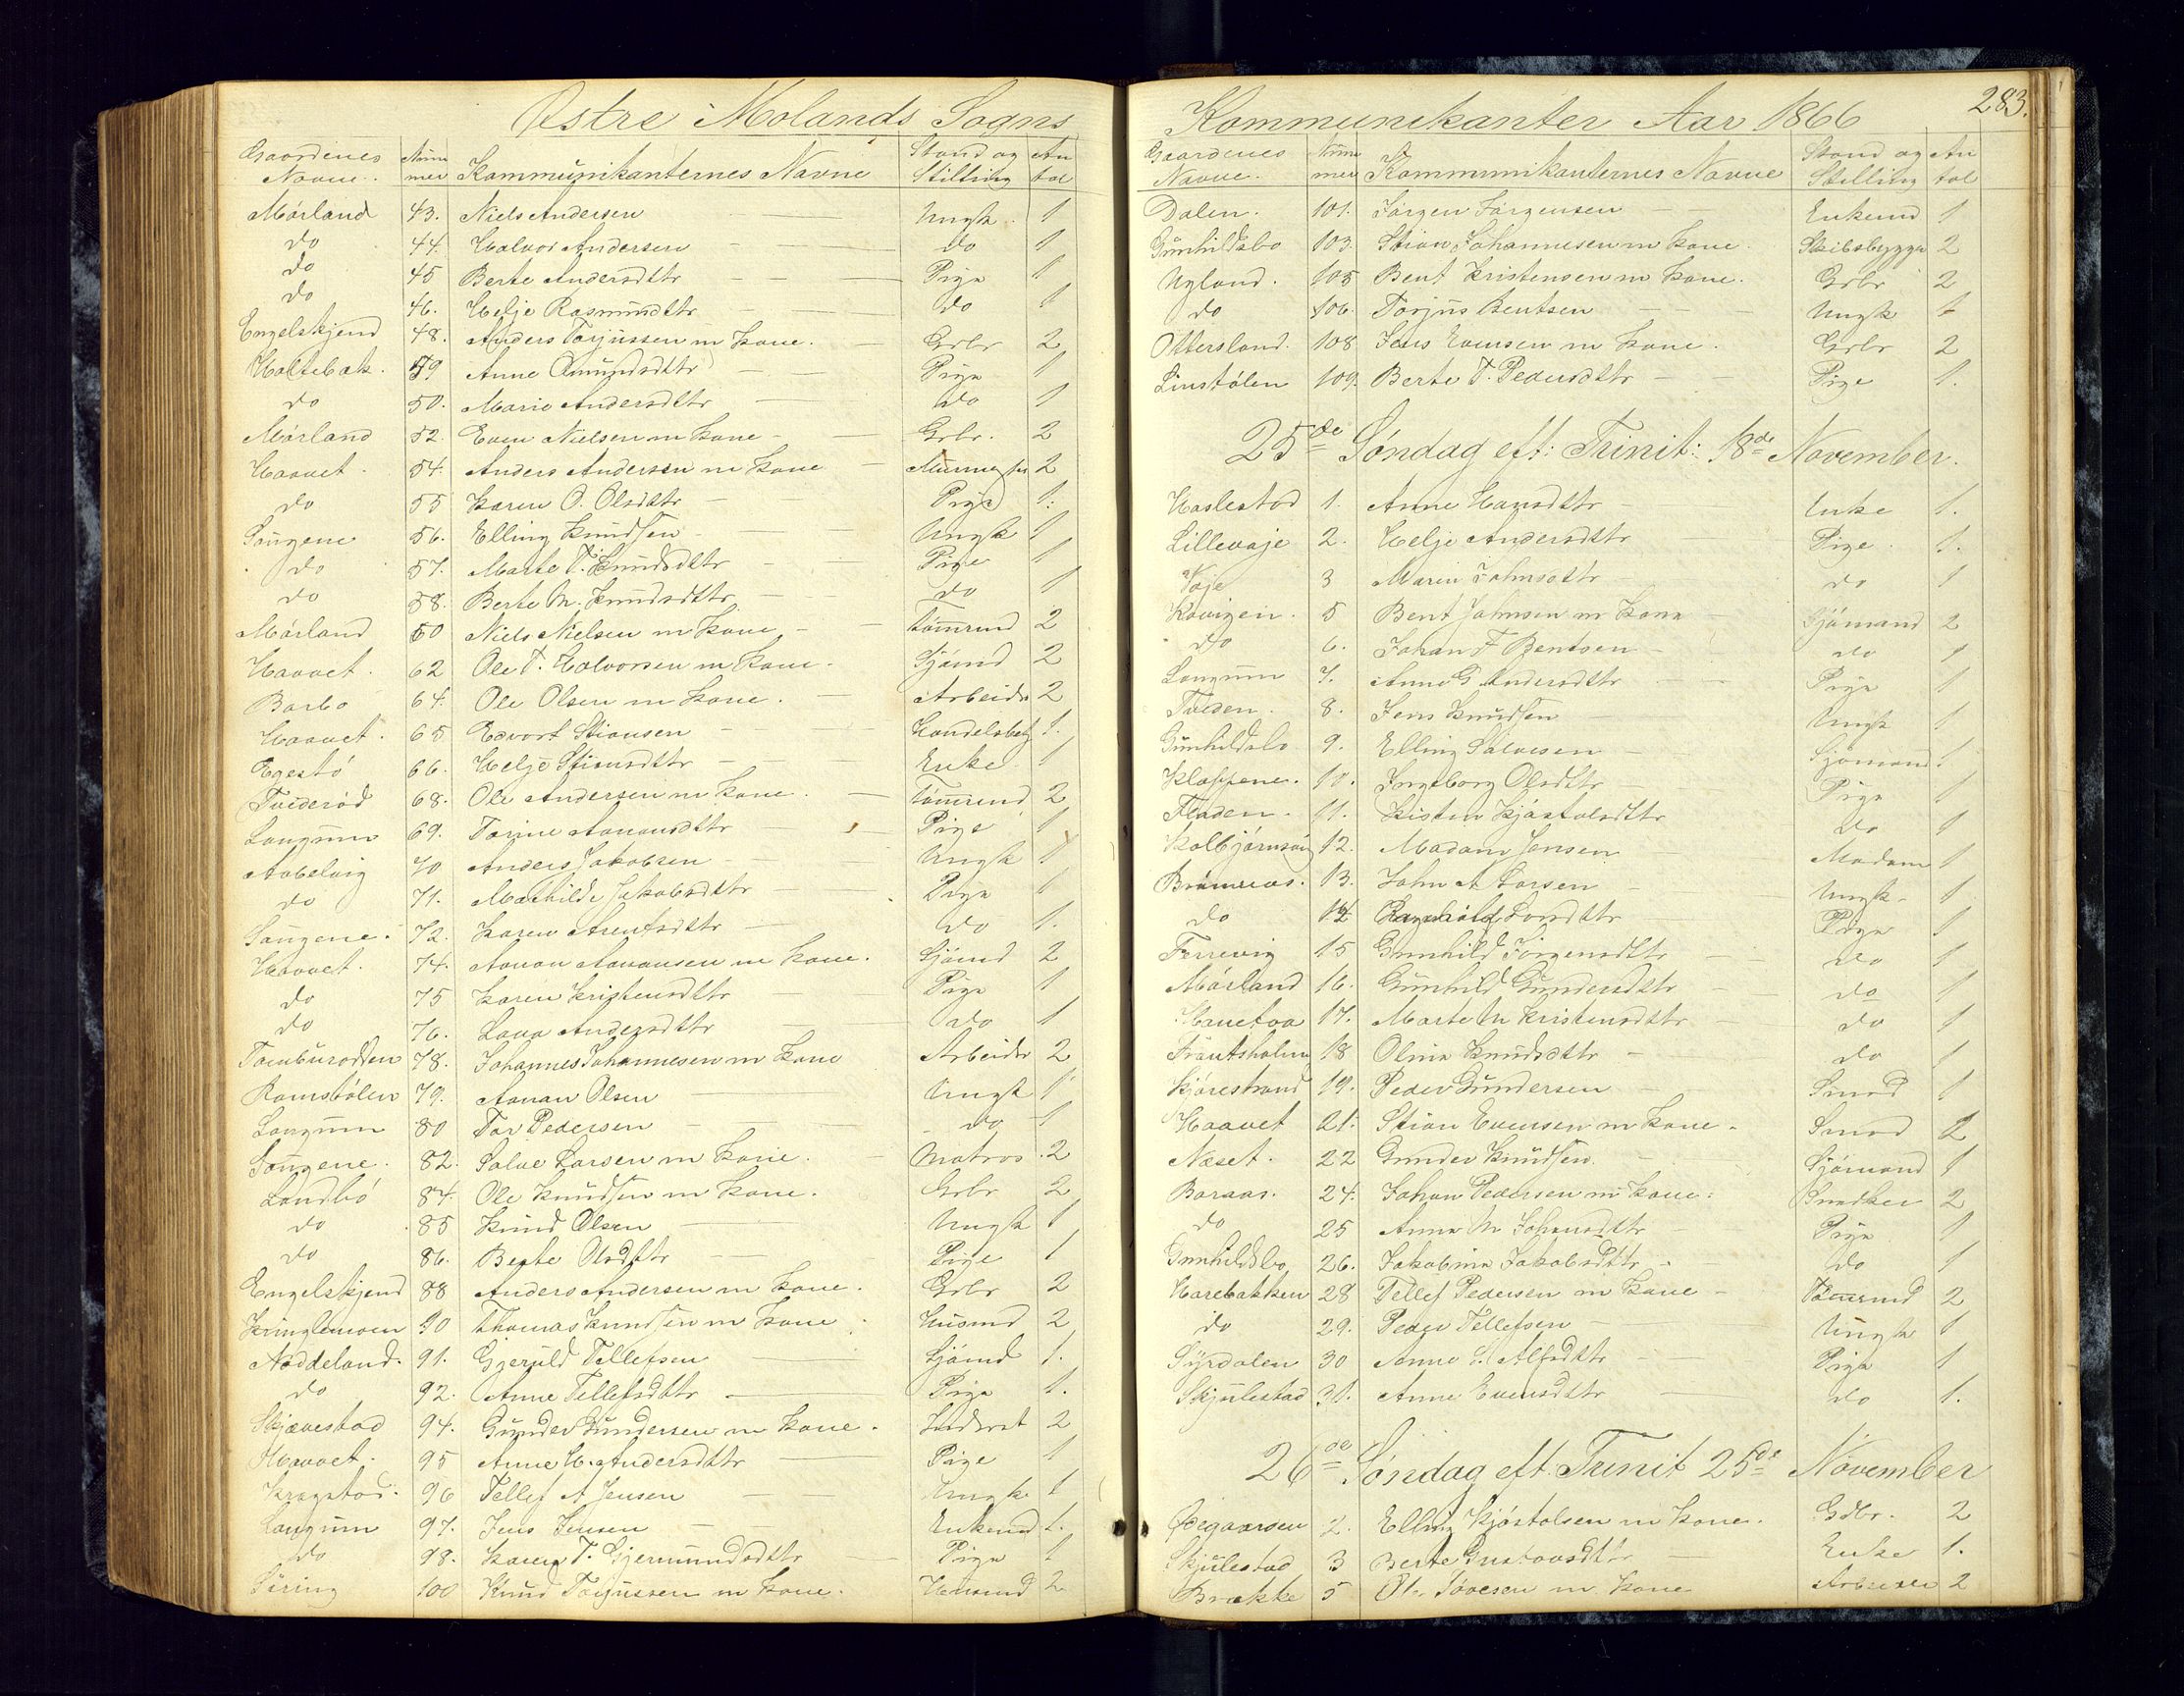 Østre Molands Sogns
Gaardenes Navne. Num mer Kommunikanternes Navne Stand og Stilling An tal
Mørland 43. Niels Andersen Ungk. 1
do 44. Halvor Andersen do 1
do 45 Berte Andersdttr Pige 1
do 46. Helje Rasmundttr do 1
Engelskjend 48. Anders Torjussen m Kone. Grbr 2
Holtebak. 49 Anne Omundsdttr Pige 1
do 50. Marie Andersdttr do 1
Mørland 52. Even Nielsen m Kone Grbr. 2
Haavet 54. Anders Andersen m Kone 2
do 55 Karen O. Olsdttr Pige 1.
Songene 56. Elling Knudsen Ungk 1
do 57. Marte T. Knudsdttr Pige 1
do 58. Berte M. Knudsdttr do 1
Mørland 60 Niels Nielsen m Kone Tømmnd 2
Haavet. 62 Ole T. Halvorsen m Kone. Sjømd 2
Barbo 64. Ole Olsen m Kone. Arbeider 2
Haavet. 65 Edvart Stiansen Handelsbetj 1.
Egestø 66. Helje Stiansdttr Enke 1
Tvederød 68. Ole Andersen m Kone. Tømmnd 2
Langum 69. Torine Aanonsdttr Pige 1
Aabelvig 70 Anders Jakobsen Ungk 1
do 71. Mathilde Jakobsdttr Pige 1
Songene. 72. Karen Arentsdttr do 1.
Haavet. 74. Aanon Aanonsen m Kone. Sjømd 2
do 75 Karen Kristensdttr Pige 1
do 76. Lava Andersdttr do 1
Tamburodden 78. Johannes Johannesen m Kone Arbeider 2
Ramstølen 79. Aanon Olsen Ungk 1
Langum 80 Tor Pedersen do 1
Songene. 82. Salve Larsen m Kone. Matros. 2
Landbø 84. Ole Knudsen m Kone. Grbr 2
do 85 Knud Olsen Ungk 1
do 86. Berte Olsdttr Pige 1
Engelskjend 88 Anders Andersen m Kone. Grbr 2
Kringlemoen 90 Thomas Knudsen m Kone Husmd 2
Naddeland. 91. Gjeruld Tellefsen Sjømd 1.
do 92. Anne Tellefsdttr Pige 1.
Skjævestad 94. Gunder Gundersen m Kone. Inderst 2
Haavet. 95 Anne H. Andersdttr Pige 1
Kragstad. 96 Tellef A Jensen Ungk 1
Langum 97. Jens Jensen Enkemd 1.
do 98. Karen T. Gjermundsdttr Pige 1
Søring 100 Knud Torjussen m Kone. Husmd 2
Kommunikanter Aar 1866 283.
Gaardenes Navne. Num mer Kommunikanternes Navne Stand og Stilling An tal
Dalen. 101. Jørgen Jørgensen Enkemd 1
Gunhildsbo 103. Stian Johannesen m Kone. Skibsbygger 2
Ugland. 105 Bent Kristensen m Kone. Grbr 2
do 106. Torjus Bentsen Ungk 1
Ottersland. 108 Jens Evensen m Kone. Grbr 2
Linstølen 109. Berte T. Pedersdttr Pige 1.
25de Søndag eft: Trinit: 18de November.
Haslestad 1. Anne Hansdttr Enke 1.
Lillevaje 2. Helje Andersdttr Pige 1.
Vaje 3 Maren Johnsdttr do 1
Kaavigen. 5 Bent Johnsen m Kone Sjømand 2
do 6. Johan F Bentsen do 1
Langum 7. Anne G Andersdttr Pige 1
Tveden. 8. Jens Knudsen Ungk 1
Gunhildsbo 9. Elling Salvesen Sjømand 1
Kloppene. 10. Ingeborg Olsdttr Pige 1
Fladen. 11. Kisten Kjøstolsdttr do 1
Kolbjørnsvig 12. Madam Jensen Madam 1
13. John A Larsen Ungk. 1
do 14 Ragnhild Larsdttr Pige 1
Ferrevig 15 Gunhild Jørgensdttr do 1
Mørland 16. Gunhild Gundersdttr do 1
Hanetoa 17. Marte M Kristensdttr do 1
18 Olina Knudsdttr do 1
Kjørestrand 19. Peder Gundersen Smed 1
Haavet 21. Stian Evensen m Kone. Smed 2
Næset. 22 Gunder Knudsen Sjømand 1
Boraas. 24. Johan Pedersen m Kone. Snedker 2
do 25 Anne M Johansdttr Pige 1
Gunhildsbo 26. Jakobine Jakobsdttr do 1
Harebakken 28 Tellef Pedersen m Kone Tømmnd 2
do 29. Peder Tellefsen Ungk 1
Syrdalen 30 Anne S. Alfsdttr Pige 1
Skjulestad 31. Anne Evensdttr do 1.
26de Søndag eft. Trinit 25de November
Ødegaarden 2. Elling Kjøstolsen m Kone. Gdbr. 2
Skjulestad 3 Berte Gustavsdttr Enke 1.
Brække 5 Ole Tovesen m Kone Arbeider 2